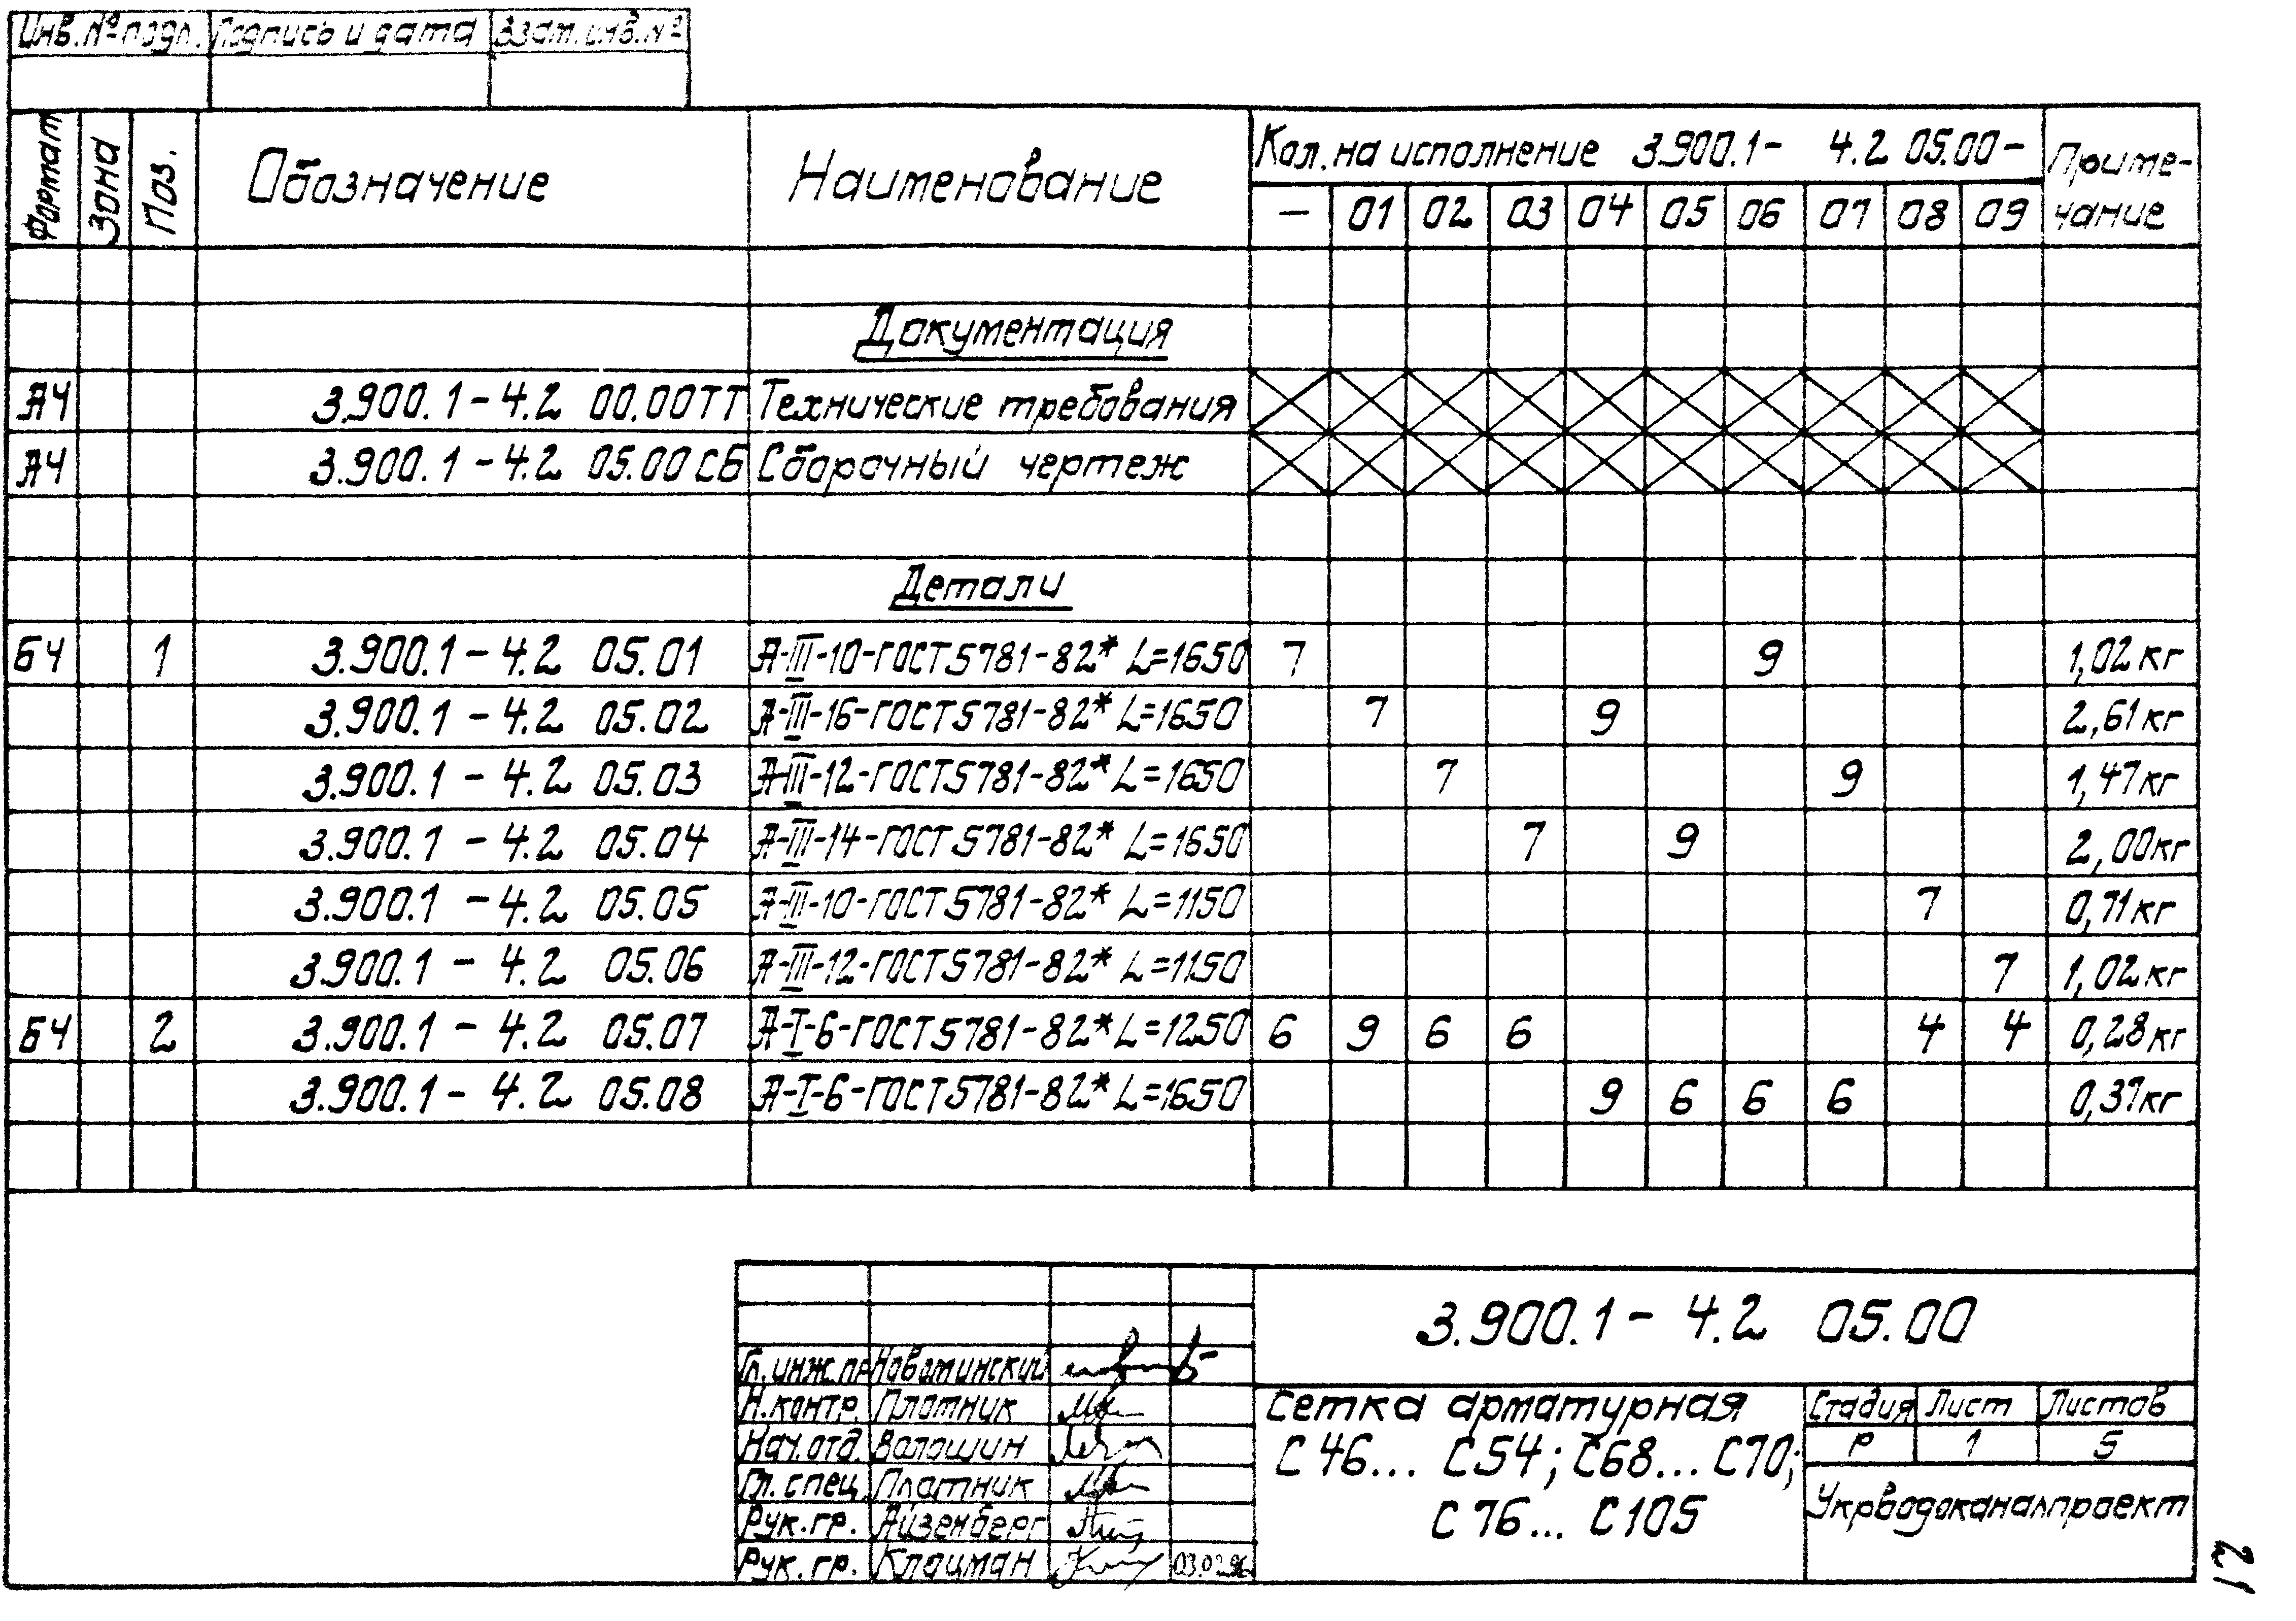 Инв.№ подл. Подпись и дата Взам.инв.№
Формат Зона Поз. Обозначение Наименование Кол. на исполнение 3.900.1- 4.2 05.00- Приме-
чание
– 01 02 03 04 05 06 07 08 09
Документация
А4 3.900.1-4.2 00.00ТТ Технические требования
А4 3.900.1-4.2 05.00СБ Сборочный чертеж
Детали
БЧ 1 3.900.1-4.2 05.01 А-III-10-ГОСТ5781-82* L=1650 7 9 1,02кг
3.900.1-4.2 05.02 А-III-16-ГОСТ5781-82* L=1650 7 9 2,61кг
3.900.1-4.2 05.03 А-III-12-ГОСТ5781-82* L=1650 7 9 1,47кг
3.900.1-4.2 05.04 А-III-14-ГОСТ5781-82* L=1650 7 9 2,00кг
3.900.1-4.2 05.05 А-III-10-ГОСТ5781-82* L=1150 7 0,71кг
3.900.1-4.2 05.06 А-III-12-ГОСТ5781-82* L=1150 7 1,02кг
БЧ 2 3.900.1-4.2 05.07 А-I-6-ГОСТ5781-82* L=1250 6 9 6 6 4 4 0,28кг
3.900.1-4.2 05.08 А-I-6-ГОСТ5781-82* L=1650 9 6 6 6 0,37кг
3.900.1-4.2 05.00
Гл.инж.пр Новоминский
Н.контр. Плотник
Нач.отд. Волошин
Гл.спец. Плотник
Рук.гр. Айзенберг
Рук.гр. Клацман
Сетка арматурная
С46... С54; С68... С70;
С76... С105
Стадия Лист Листов
Р 1 5
Укрводоканалпроект
21